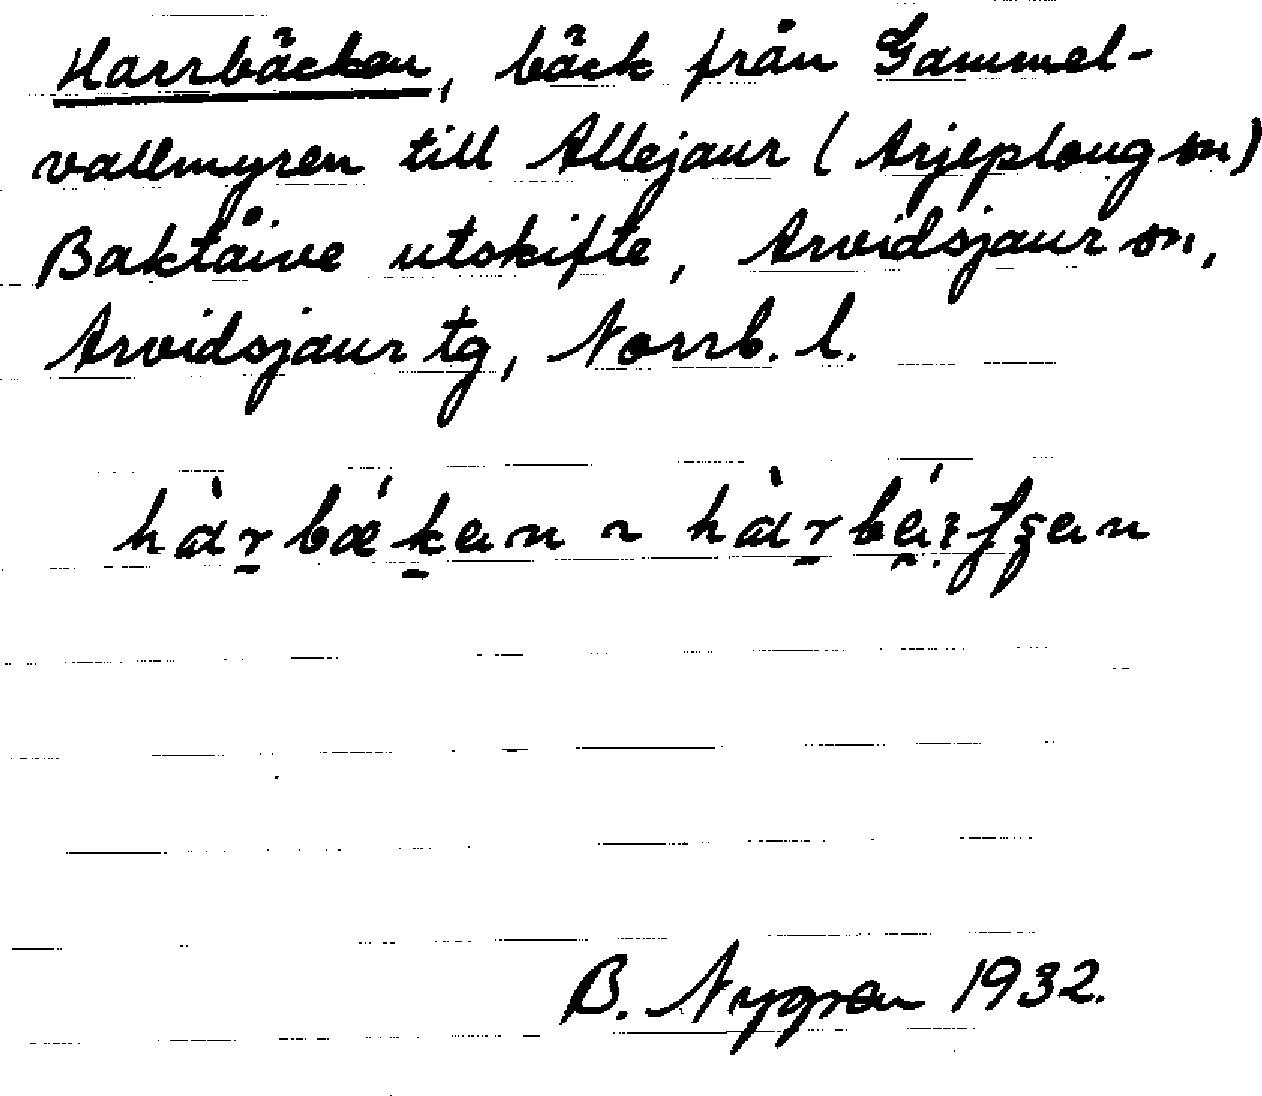 Harrbäcken, bäck från Gammel-
vallmyren till Allejaur (Arjeploug sn)
Baktåive utskifte, Arvidsjaur sn,
Arvidsjaur tg, Norrb. l.
B. Nygren 1932.